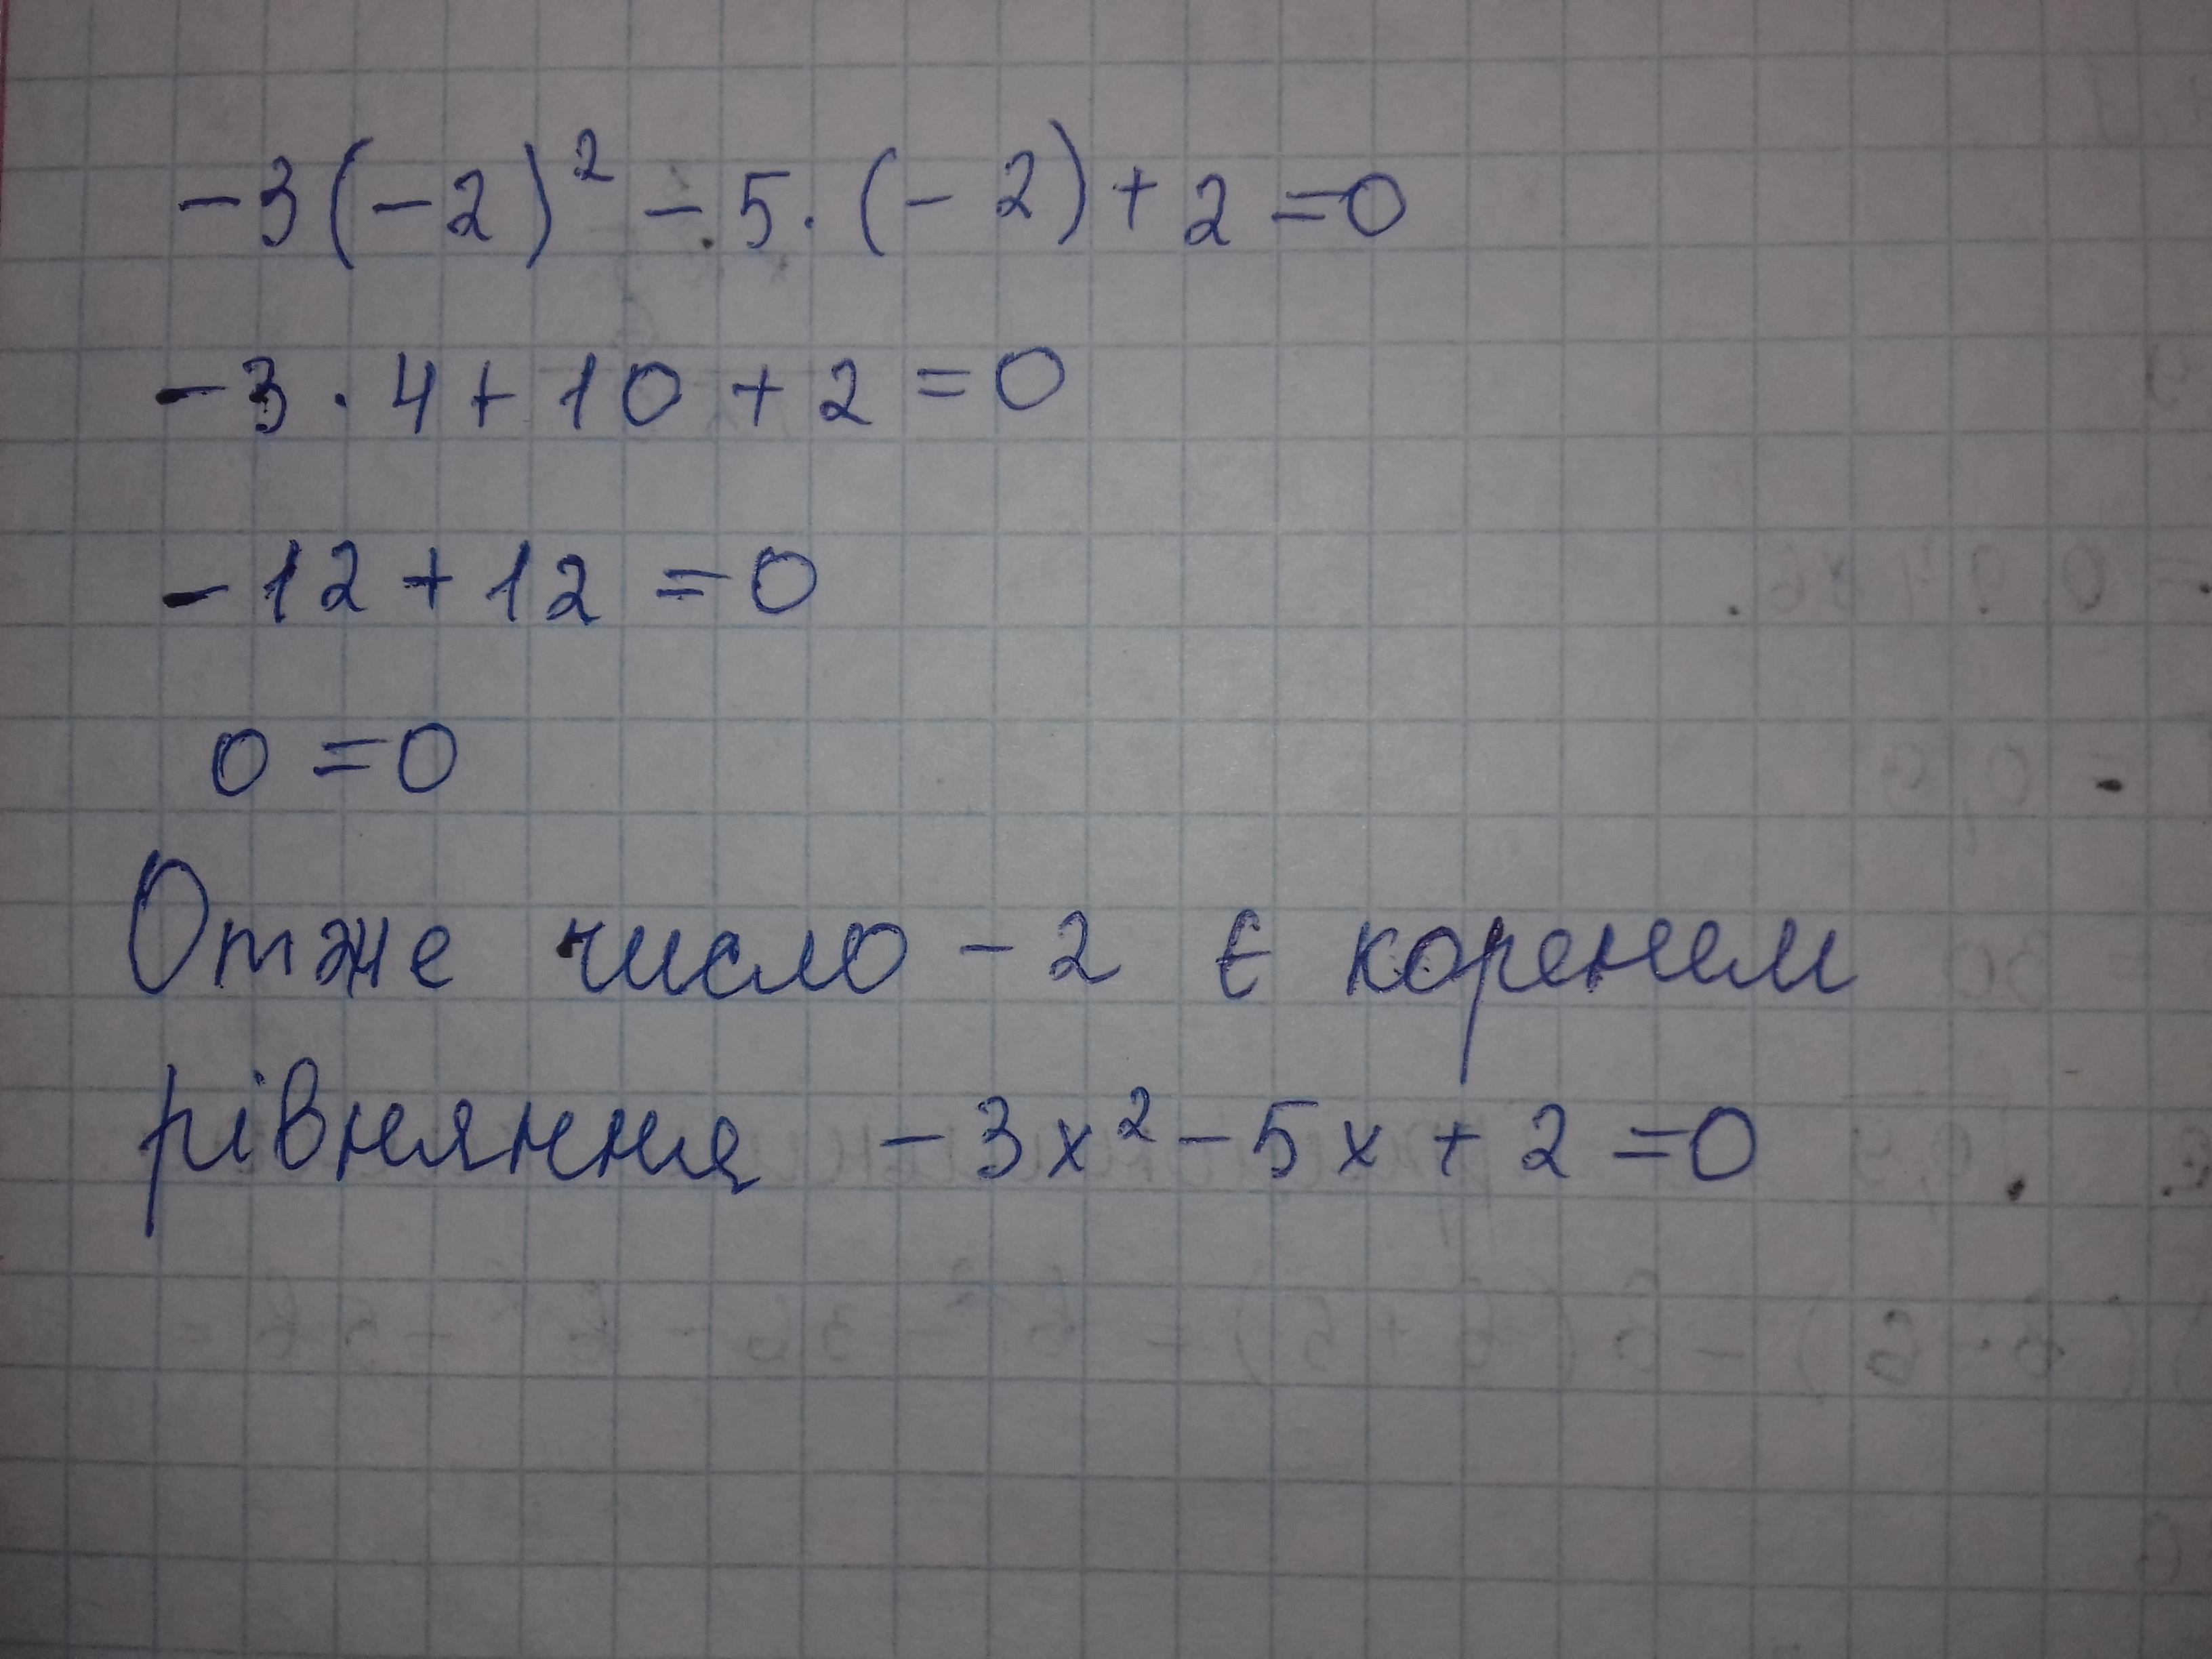 -3(-2)² - 5·(-2) + 2 = 0
-3·4 + 10 + 2 = 0
-12 + 12 = 0
0 = 0
Отже число -2 є коренем
рівняння -3x² - 5x + 2 = 0